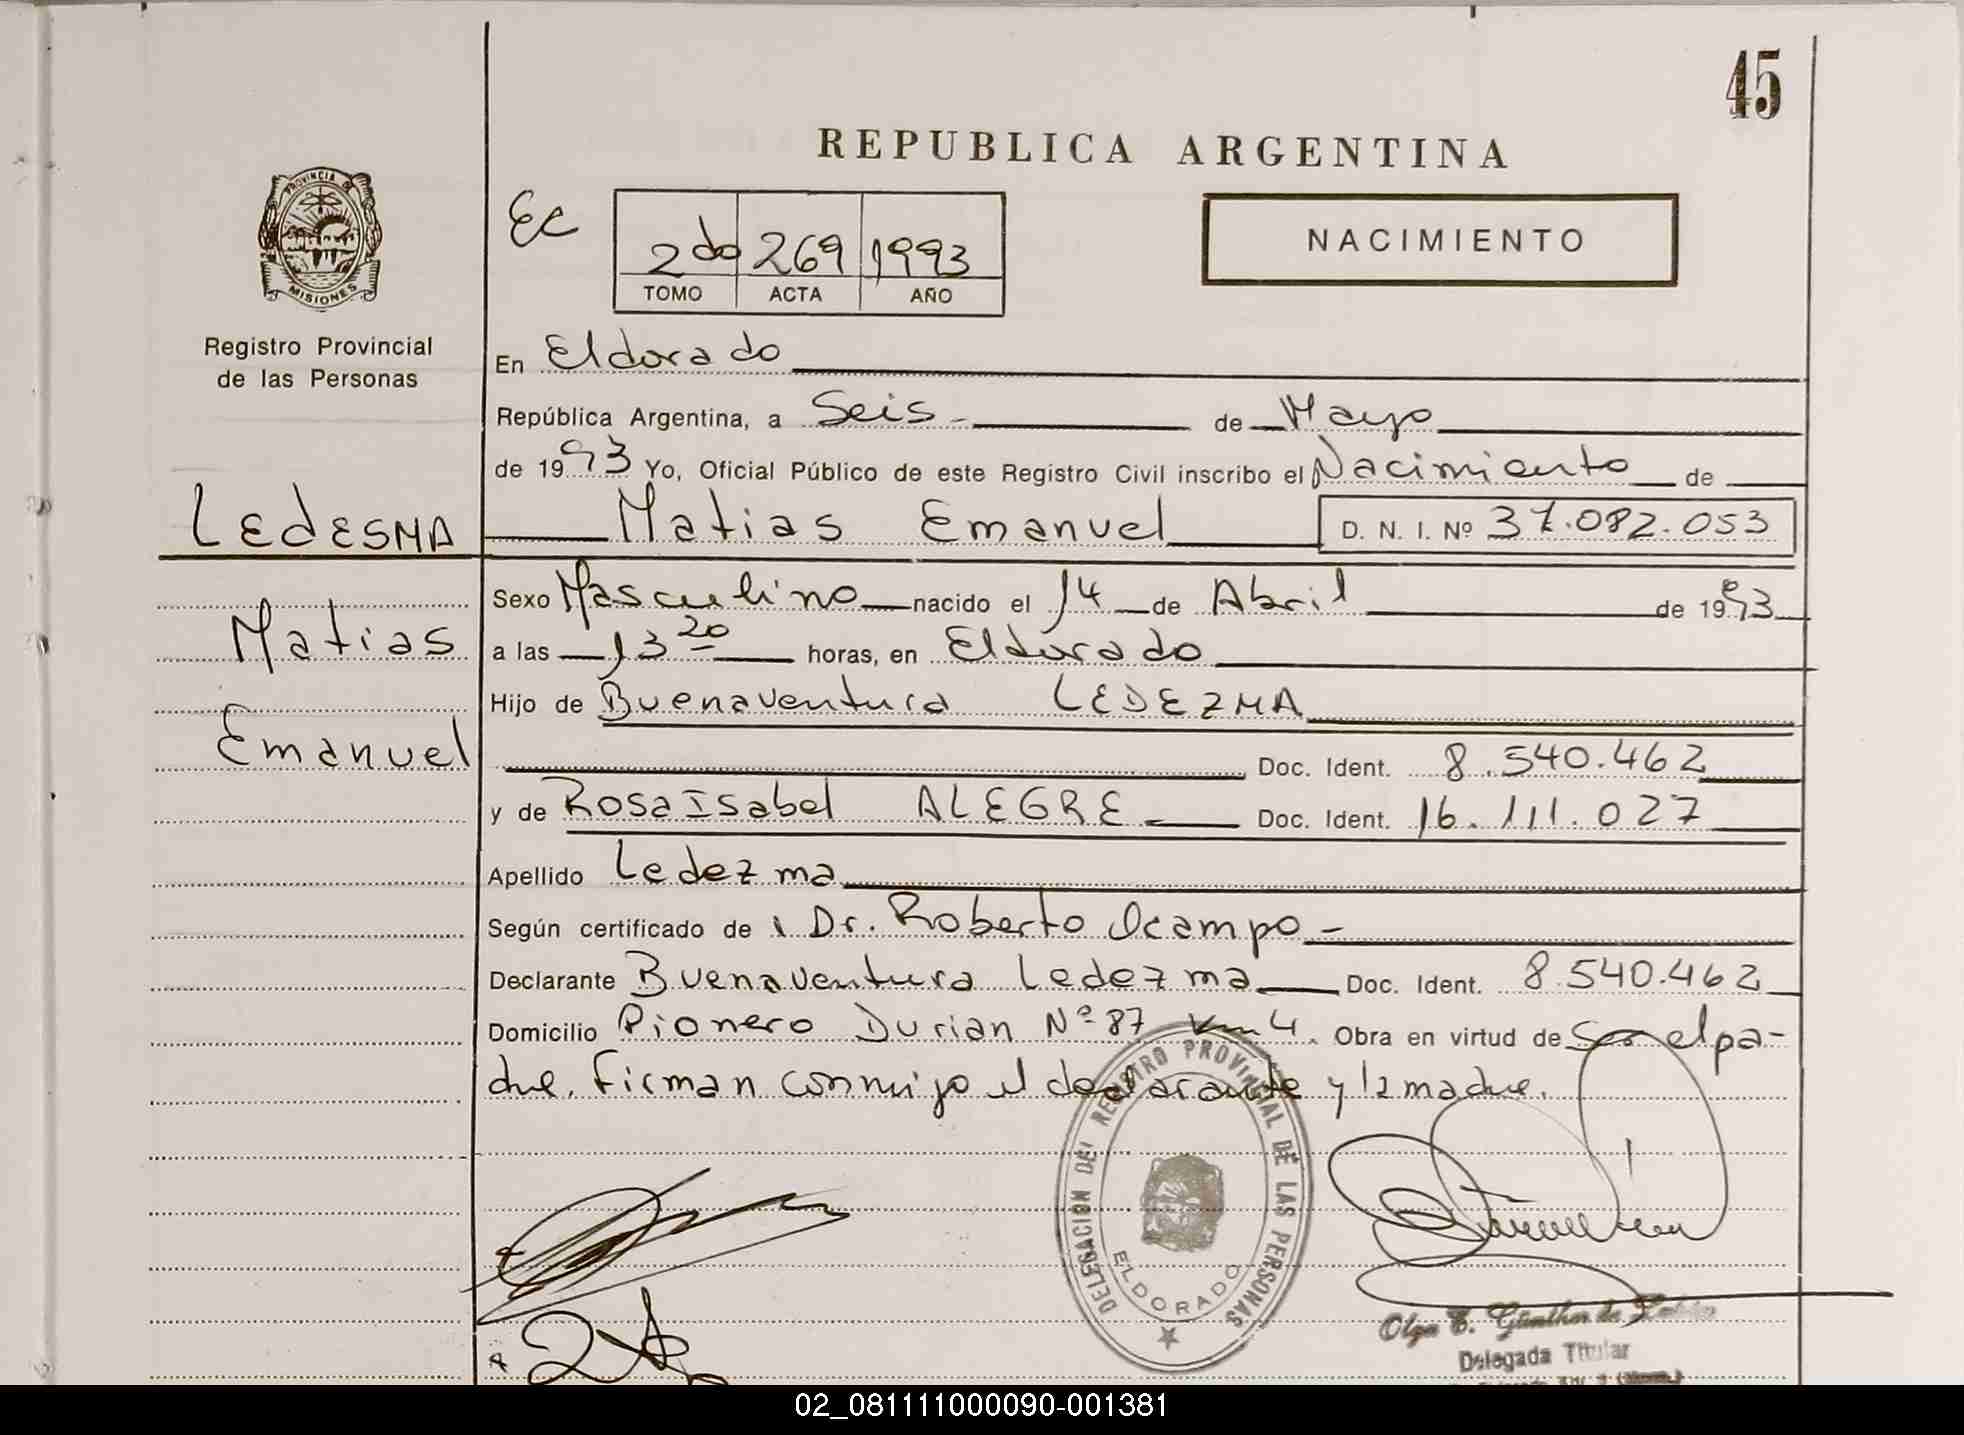 45
REPUBLICA ARGENTINA
PROVINCIA DE
MISIONES
Registro Provincial
de las Personas
Ec
2do 269 1993
TOMO ACTA AÑO
NACIMIENTO
En Eldorado
República Argentina, a Seis de Mayo
de 1993 Yo, Oficial Público de este Registro Civil inscribo el Nacimiento de
LEdESMA
Matias Emanuel D. N. I. Nº 37.082.053
Matias
Emanuel
Sexo Masculino nacido el 14 de Abril de 1993
a las 13 20 horas, en Eldorado
Hijo de Buenaventura LEDEZMA
Doc. Ident. 8.540.462
y de Rosa Isabel ALEGRE Doc. Ident. 16.111.027
Apellido Ledezma
Según certificado de Dr. Roberto Ocampo
Declarante Buenaventura Ledezma Doc. Ident. 8.540.462
Domicilio Pionero Durian Nº 87 Km 4. Obra en virtud de Ser el pa-
dre. Firman conmigo el declarante y la madre.
DELEGACION DEL REGISTRO PROVINCIAL DE LAS PERSONAS
ELDORADO
Olga E. Günther de
Delegada Titular
02_081111000090-001381